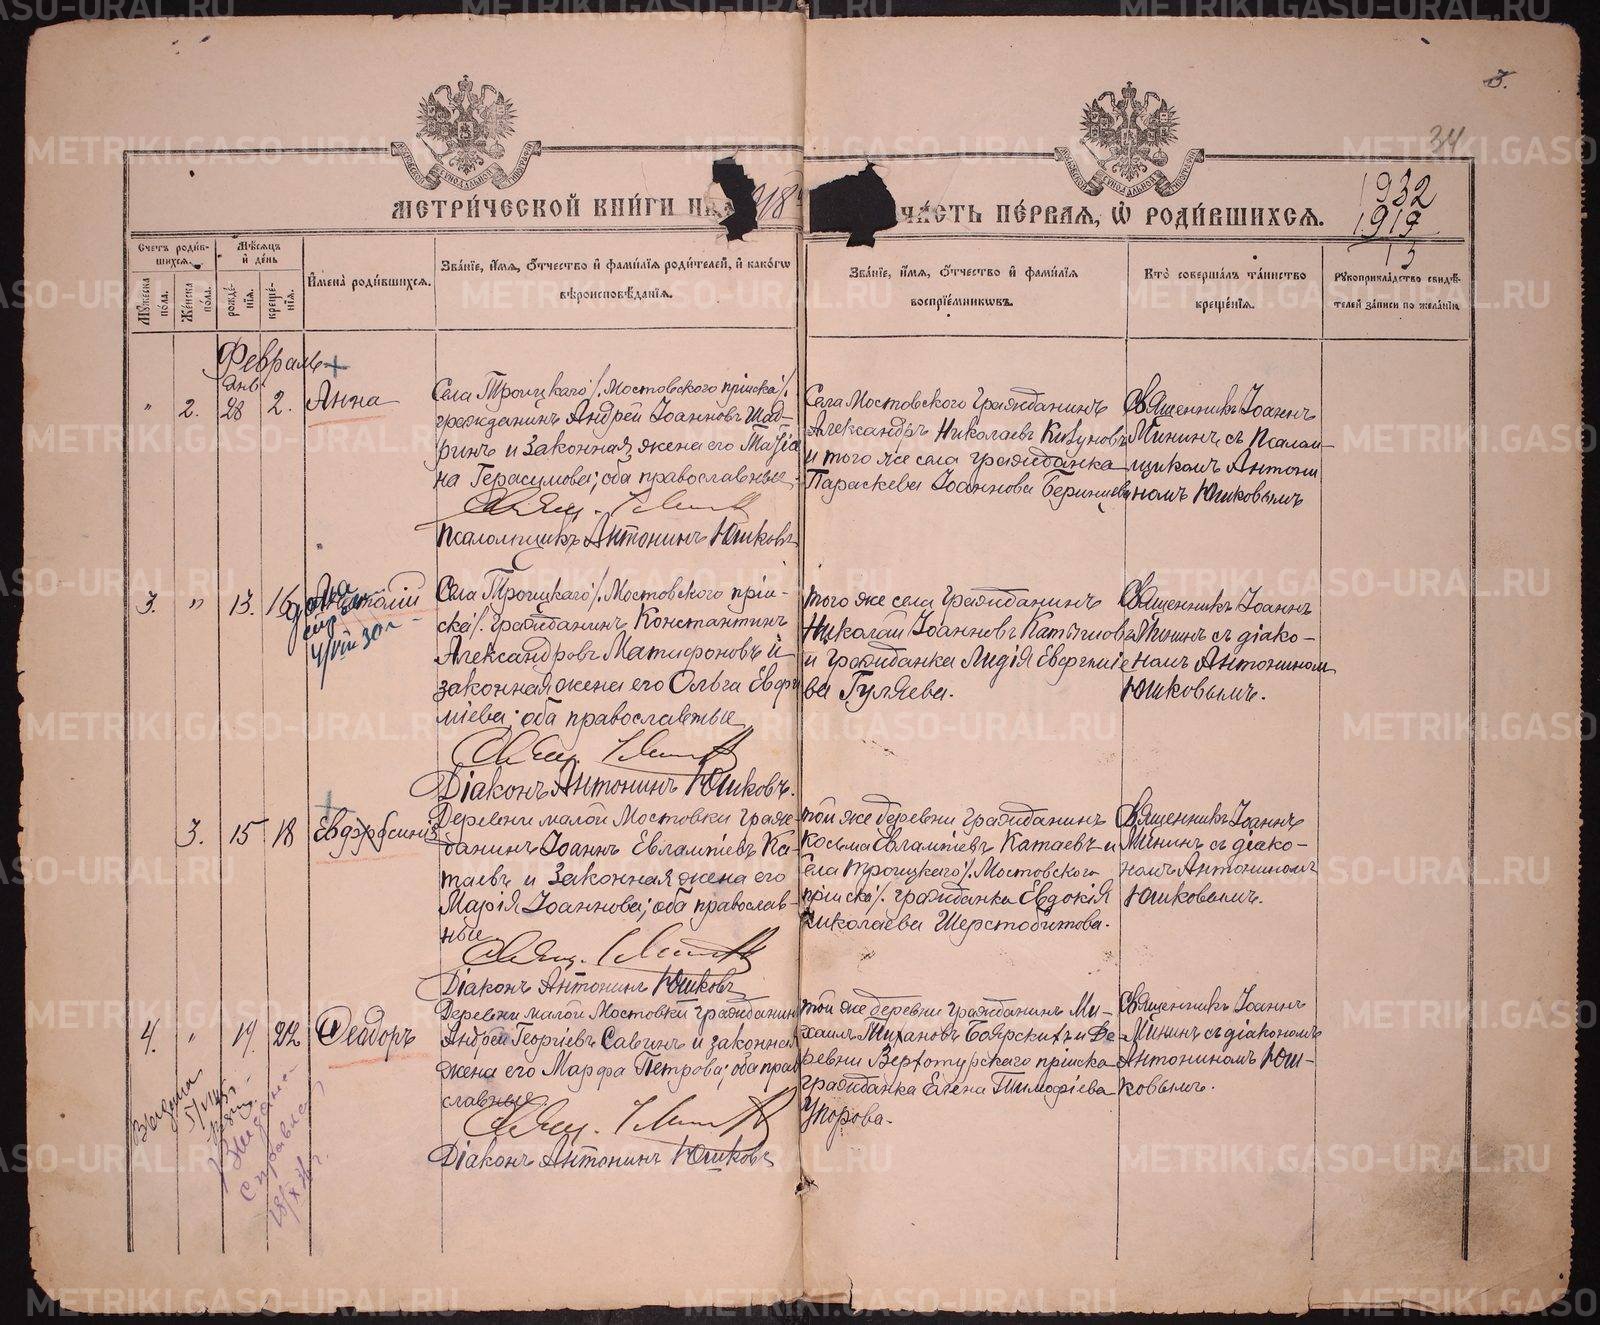 З.
34
МЕТРИЧЕСКОЙ КНИГИ НА 1918
ЧАСТЬ ПЕРВАЯ, Ѡ РОДИВШИХСЯ.
1932
1919
13
Счетъ родившихся.
Мужеска пола.
Женска пола.
Мѣсяцъ и день
рожденія.
крещенія.
Имена родившихся.
Званіе, имя, отчество и фамилія родителей, и какогѡ
вѣроисповѣданія.
Званіе, имя, отчество и фамилія
воспріемникѡвъ.
Кто совершалъ таинство
крещенія.
Рукоприкладство свидѣтелей записи по желанію
Февраль
Янв.
" 2. 28 2. Анна
Села Троицкаго /Мостовского пріиска/
гражданинъ Андрей Іоанновъ Шад-
ринъ и законная жена его Татіа
на Герасимова; оба православные
Свящ. І. Мининъ
Псаломщикъ Антонинъ Юшковъ
Села Мостовского гражданинъ
Александръ Николаевъ
и того же села гражданка
Параскева Іоаннова
Священникъ Іоаннъ
Мининъ съ псалом-
щикомъ Антони
номъ Юшковымъ
3. " 13. 16
Села Троицкаго /Мостовского прій-
ска/ гражданинъ Константинъ
Александровъ Матафоновъ и
законная жена его Ольга Евфи
міева; оба православные
Свящ. І. Мининъ
Діаконъ Антонинъ Юшковъ.
того же села гражданинъ
Николай Іоанновъ
и гражданка Лидія Евфиміе
ва Гуляева.
Священникъ Іоаннъ
Мининъ съ діако-
номъ Антониномъ
Юшковымъ.
3. 15 18 Евфросинія
Деревни малой Мостовки граж-
данинъ Іоаннъ Евлампіевъ Ка-
таевъ и законная жена его
Марія Іоаннова; оба православ-
ные
Свящ. І. Мининъ
Діаконъ Антонинъ Юшковъ
той же деревни гражданинъ
Косьма Евлампіевъ Катаевъ и
села Троицкаго /Мостовского
пріиска/ гражданка Евдокія
Николаева Шерстобитова.
Священникъ Іоаннъ
Мининъ съ діако-
номъ Антониномъ
Юшковымъ.
4. " 19. 22 Феодоръ
Деревни малой Мостовки гражданинъ
Андрей Георгіевъ Савинъ и законная
жена его Марфа Петрова; оба прав
славные.
Свящ. І. Мининъ
Діаконъ Антонинъ Юшковъ
той же деревни гражданинъ Ми-
хаилъ Боярскихъ и де-
ревни Верхотурскаго пріиска
гражданка Елена Тимофіева
Упорова.
Священникъ Іоаннъ
Мининъ съ діакономъ
Антониномъ Юш-
ковымъ.
Выдана
справка
METRIKI.GASO-URAL.RU